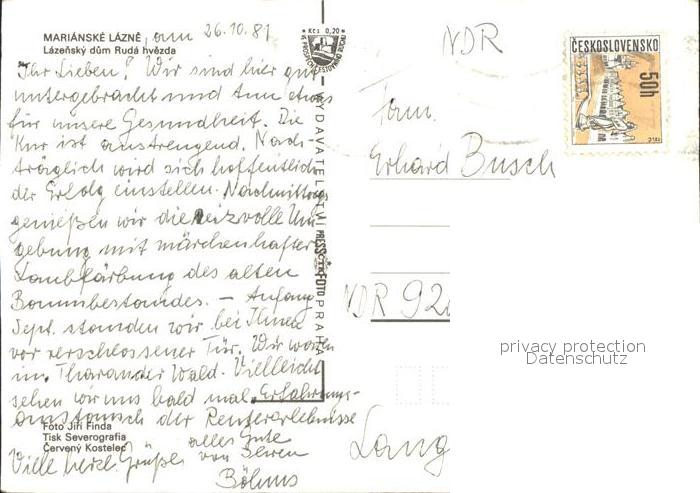 MARIÁNSKÉ LÁZNĚ, am 26.10.81
Lázeňský dům Rudá hvězda
Ihr Lieben! Wir sind hier gut
untergebracht und tun etwas
für unsere Gesundheit. Die
Kur ist anstrengend. Nach-
träglich wird sich hoffentlich
der Erfolg einstellen. Nachmittags
genießen wir die reizvolle Um
gebung mit märchenhafter
Laubfärbung des alten
Baumbestandes. – Anfang
Sept. standen wir bei Ihnen
vor verschlossener Tür. Wir waren
im Tharander Wald. Vielleicht
sehen wir uns bald mal. Erfahrungs-
austausch der Rentnererlebnisse
Foto Jiří Finda
Tisk Severografia
Červený Kostelec
alles Gute
Viele herzl. Grüße von Ihren
Böhms
Kčs 0,20
VYDAVATELSTVÍ PRESSFOTO PRAHA
NDR
ČESKOSLOVENSKO
50h
Fam.
Erhard Busch
NDR 92
Lang
privacy protection
Datenschutz